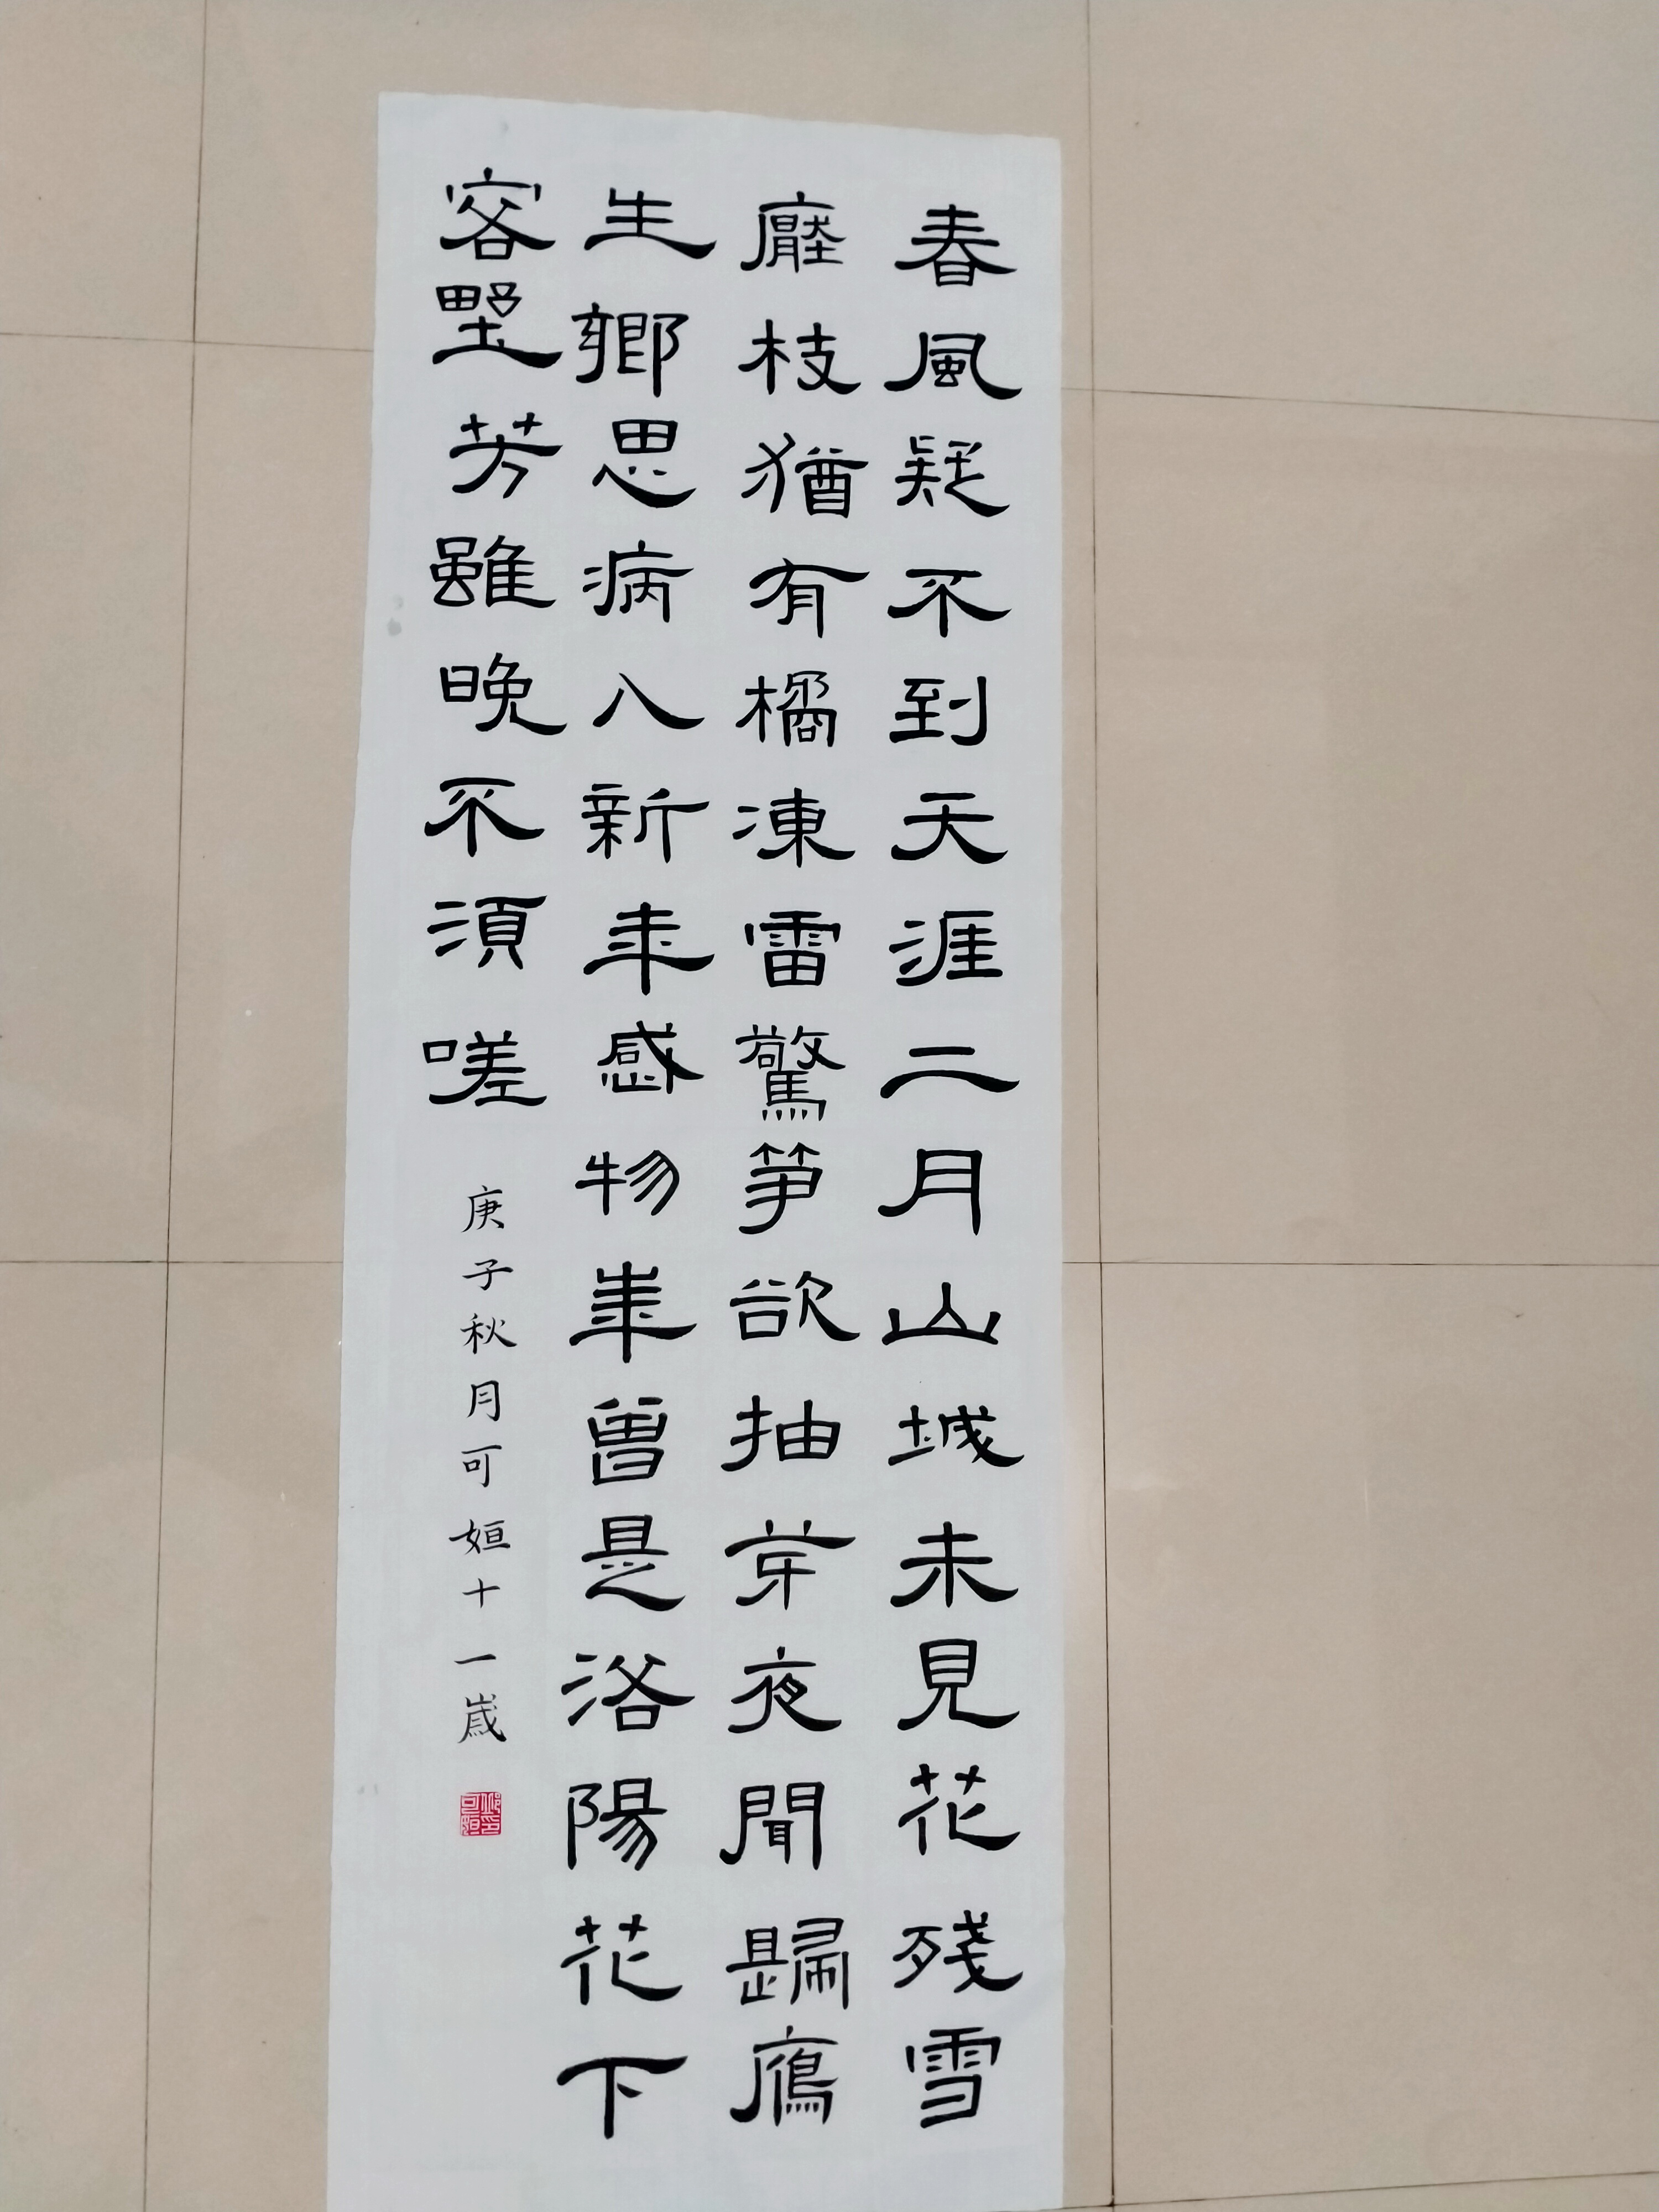 春風疑不到天涯二月山城未見花殘雪
壓枝猶有橘凍雷驚筍欲抽芽夜聞歸鴈
生鄉思病入新年感物華曾是洛陽花下
客野芳雖晚不須嗟
庚子秋月可姮十一歲